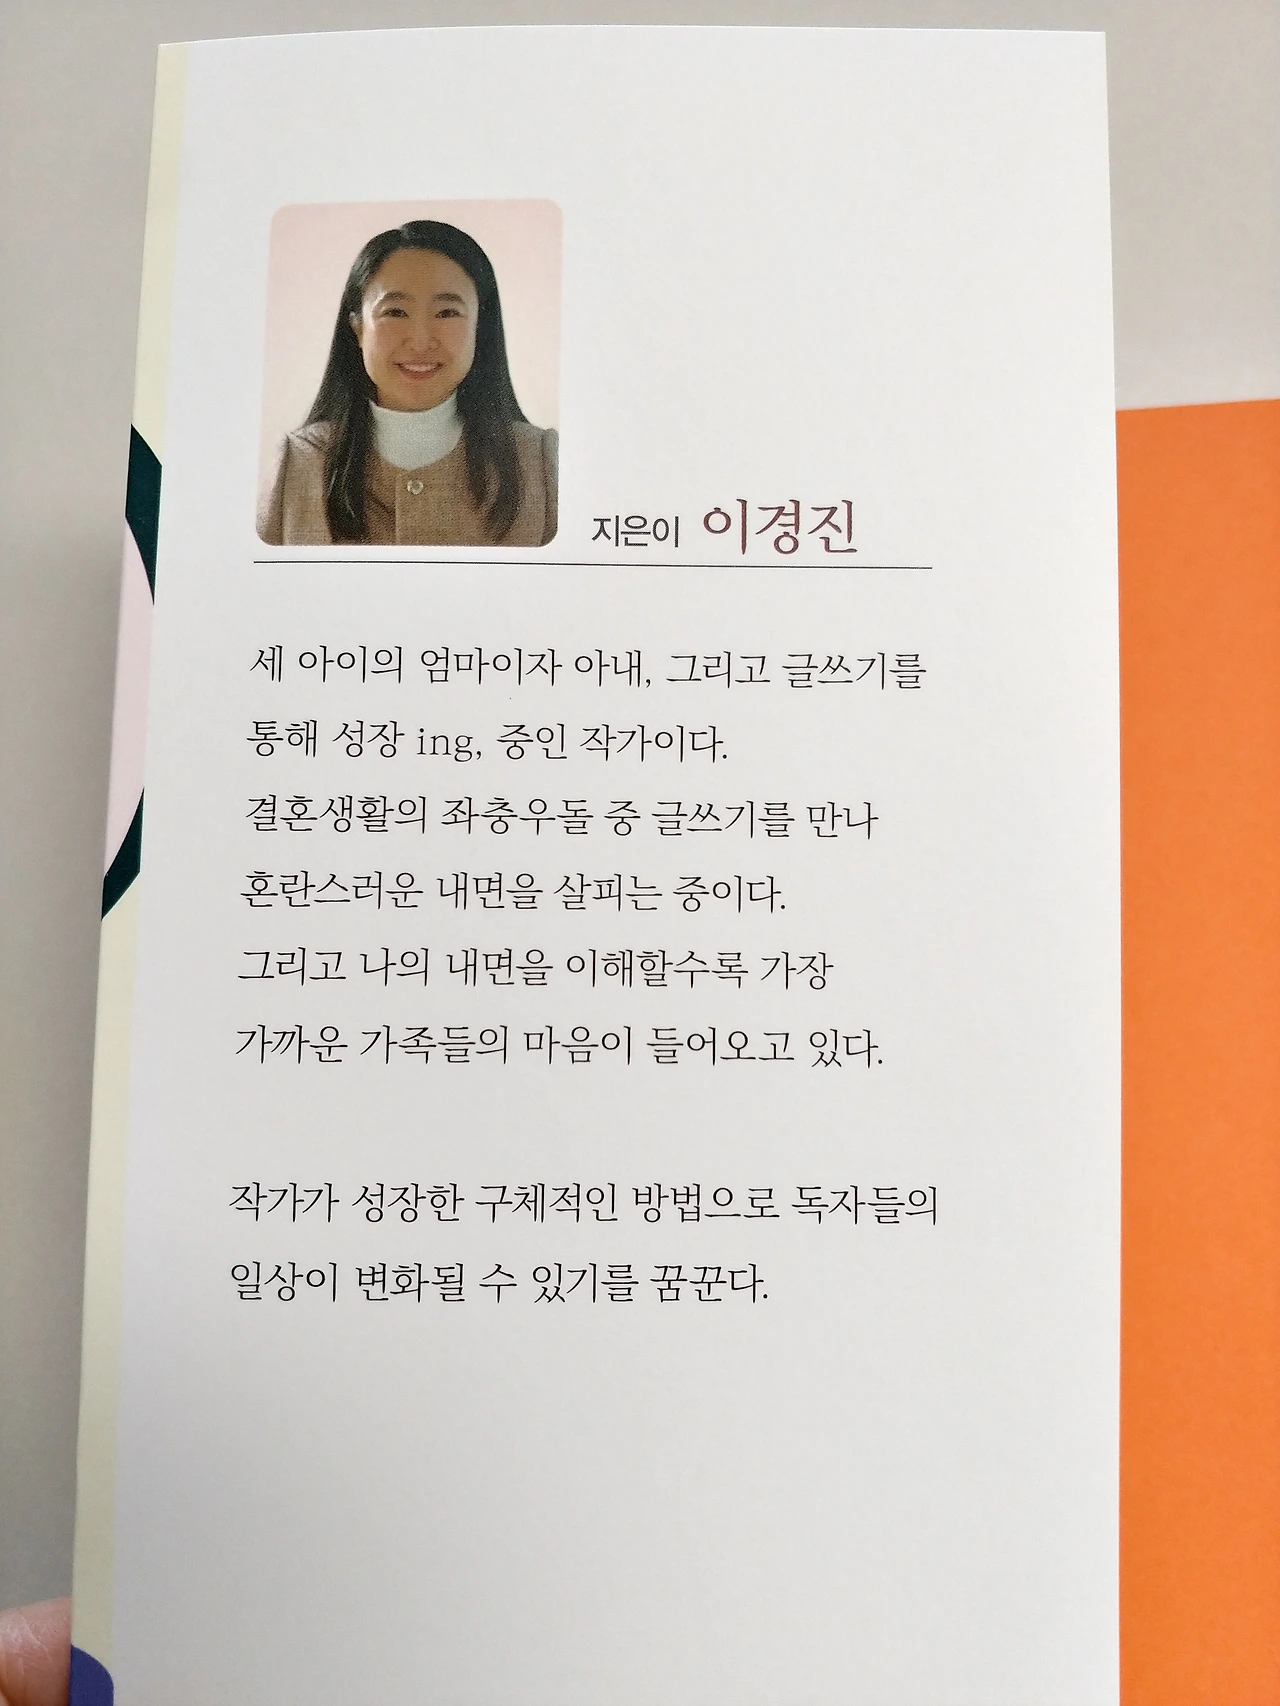 지은이 이경진
세 아이의 엄마이자 아내, 그리고 글쓰기를
통해 성장 ing, 중인 작가이다.
결혼생활의 좌충우돌 중 글쓰기를 만나
혼란스러운 내면을 살피는 중이다.
그리고 나의 내면을 이해할수록 가장
가까운 가족들의 마음이 들어오고 있다.
작가가 성장한 구체적인 방법으로 독자들의
일상이 변화될 수 있기를 꿈꾼다.